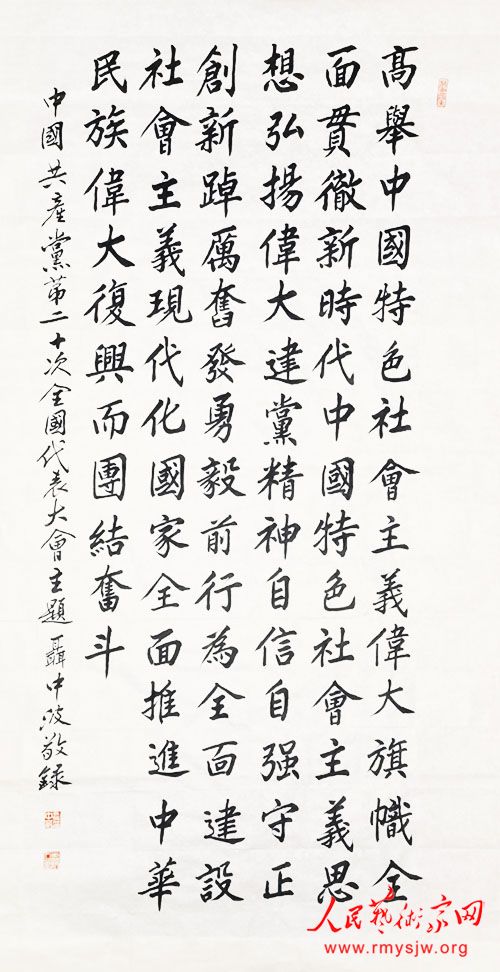 高舉中國特色社會主義偉大旗幟全
面貫徹新時代中國特色社會主義思
想弘揚偉大建黨精神自信自强守正
創新踔厲奮發勇毅前行為全面建設
社會主義現代化國家全面推進中華
民族偉大復興而團結奮斗
中國共產黨第二十次全國代表大會主題 聶中波敬録
人民藝術家网
www.rmysjw.org